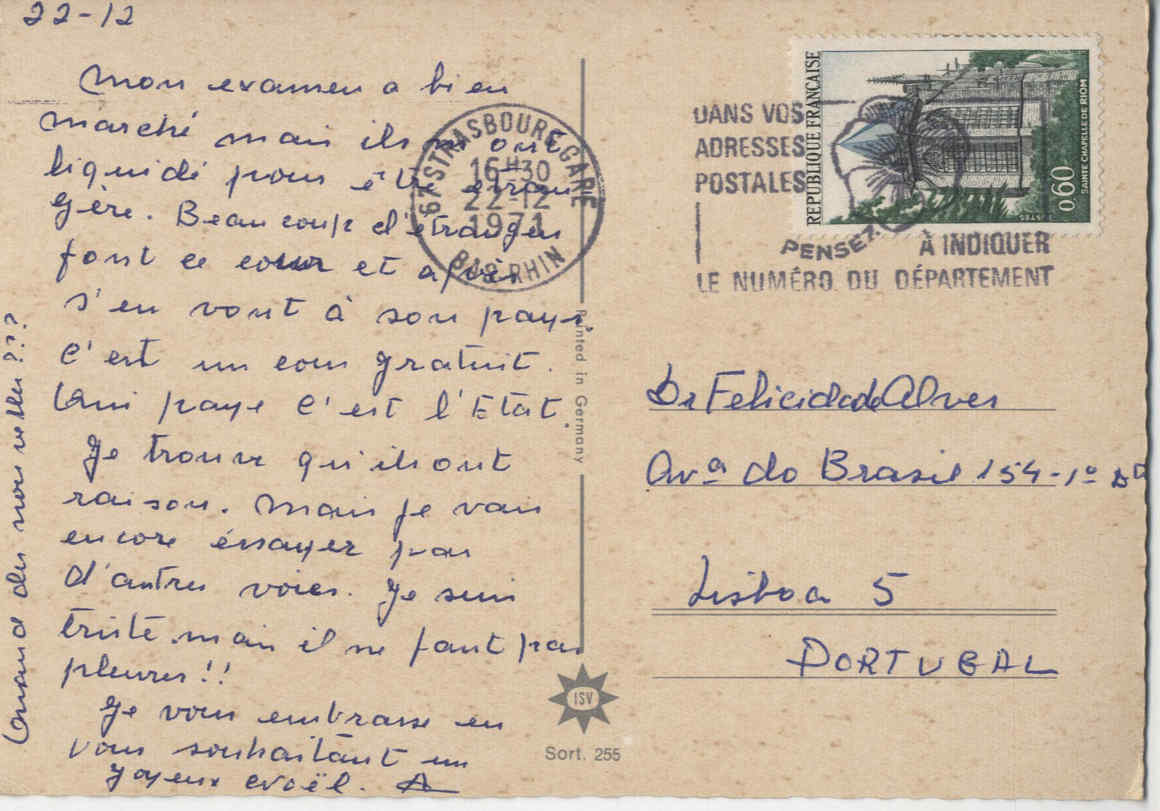 22-12
Mon examen a bien
marché mais ils m'ont
liquidé pour être étran
gère. Beaucoup d'étrangers
font ce cour et après
s'en vont à son pays.
C'est un cour gratuit.
Qui paye c'est l'Etat.
Je trouve qu'ils ont
raison. Mais je vais
encore éssayer par
d'autres voies. Je suis
triste mais il ne faut pas
pleurer!!
Je vous embrasse en
vous souhaitant un
joyeux Noël. A
Quand des nouvelles???
67 STRASBOURG GARE
16H30
22-12
1971
BAS RHIN
DANS VOS
ADRESSES
POSTALES
PENSEZ
À INDIQUER
LE NUMÉRO DU DÉPARTEMENT
REPUBLIQUE FRANÇAISE
0,60
SAINTE CHAPELLE DE RIOM
Printed in Germany
Dr Felicidade Alves
Avª do Brasil 154-1º Dº
Lisboa 5
PORTUGAL
ISV
Sort. 255